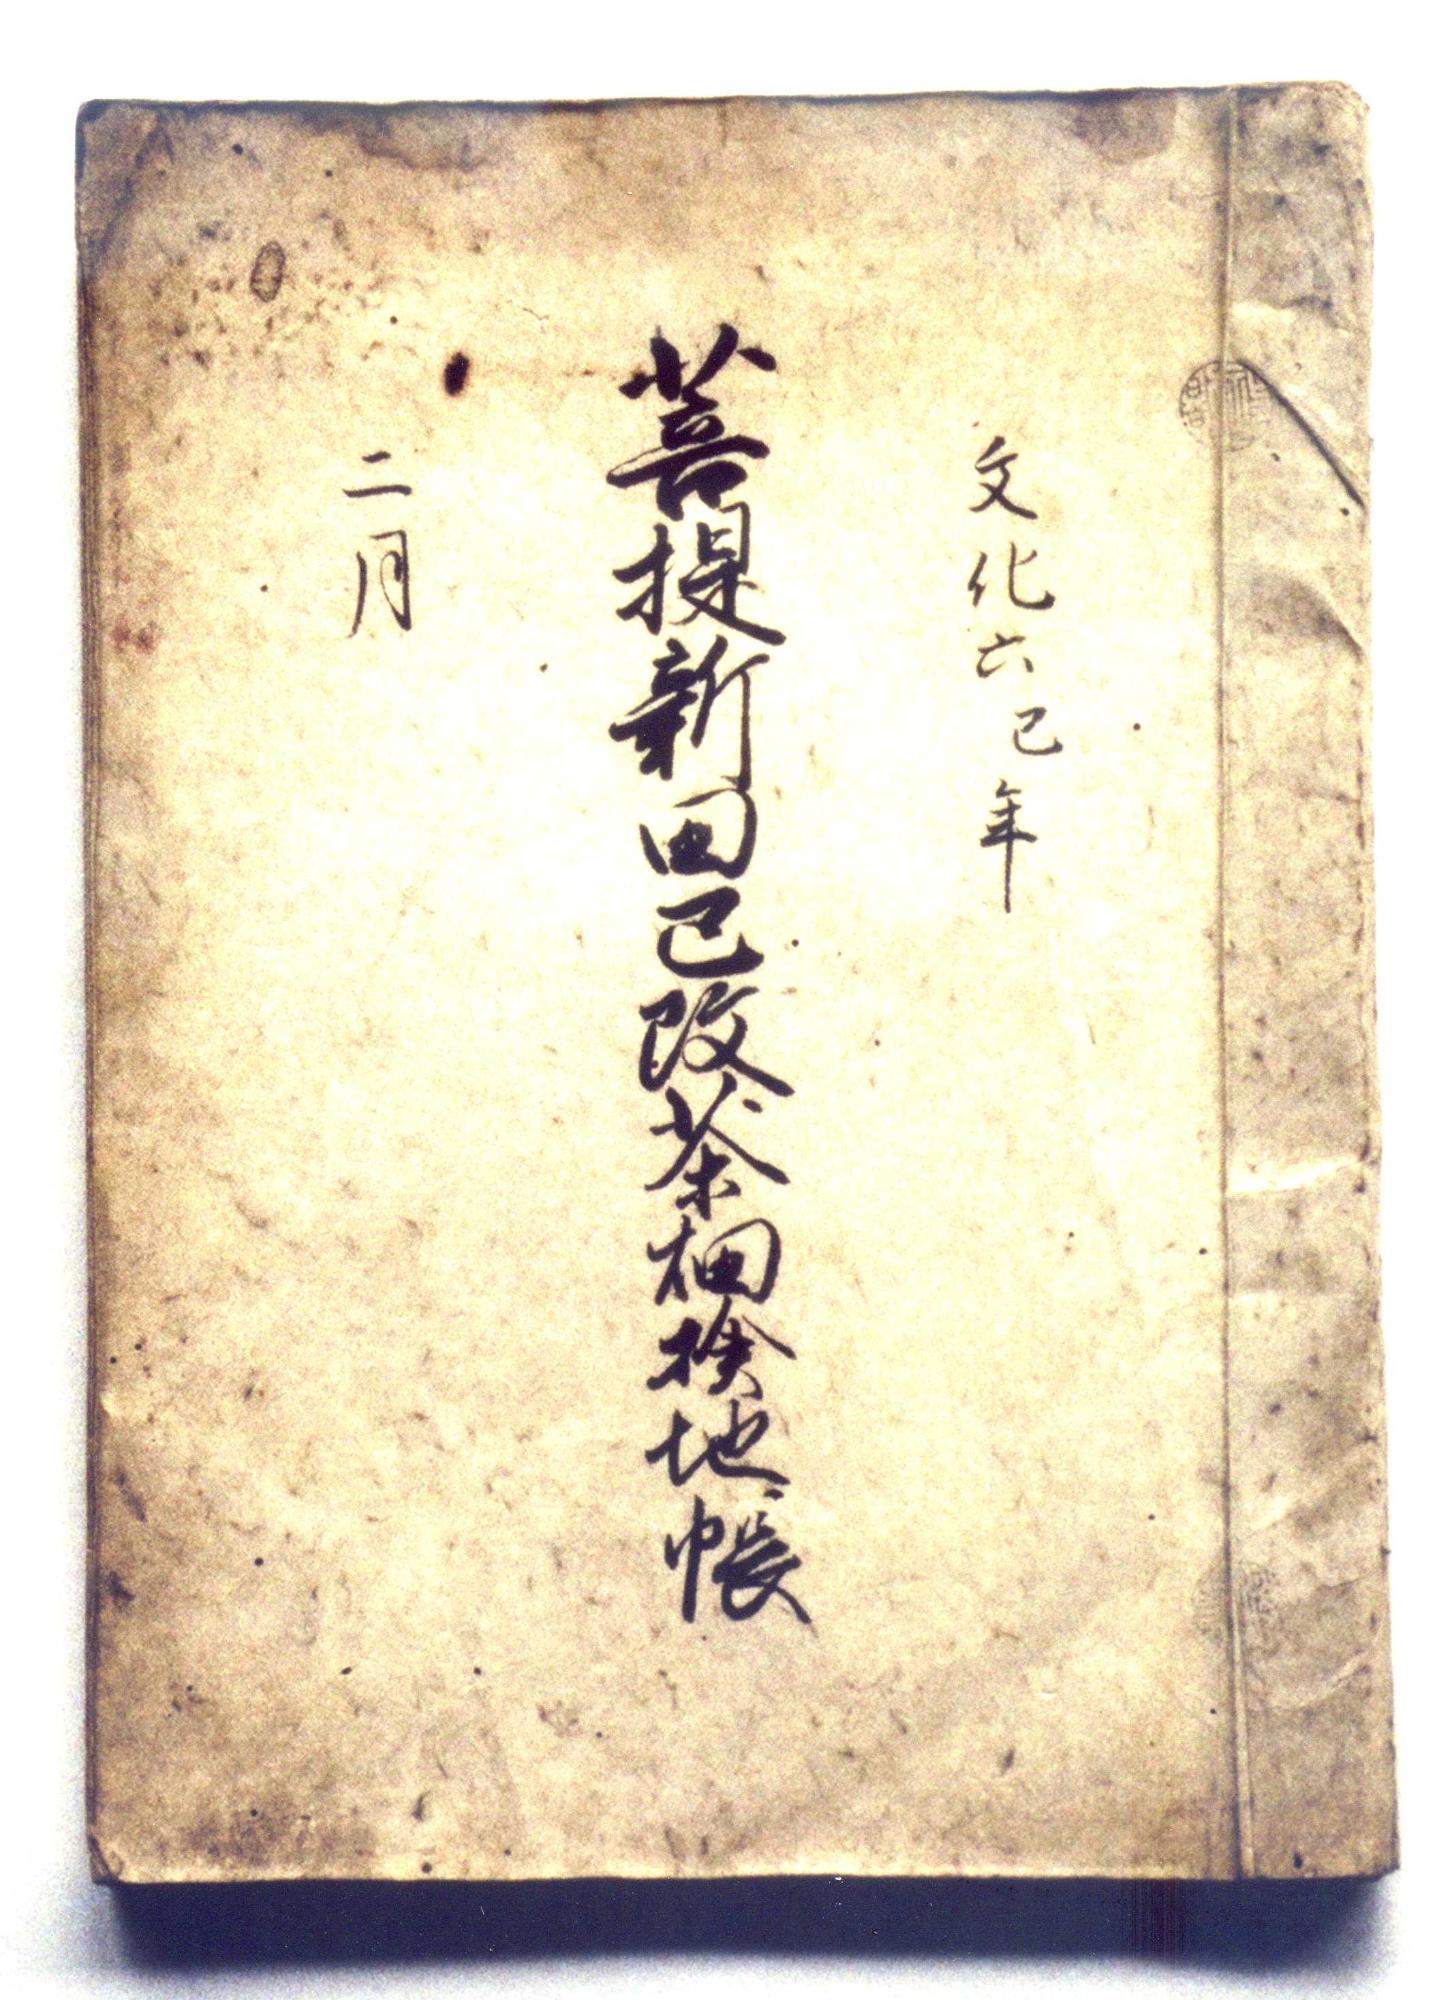 文化六巳年
菩提新田巳改茶畑検地帳
二月